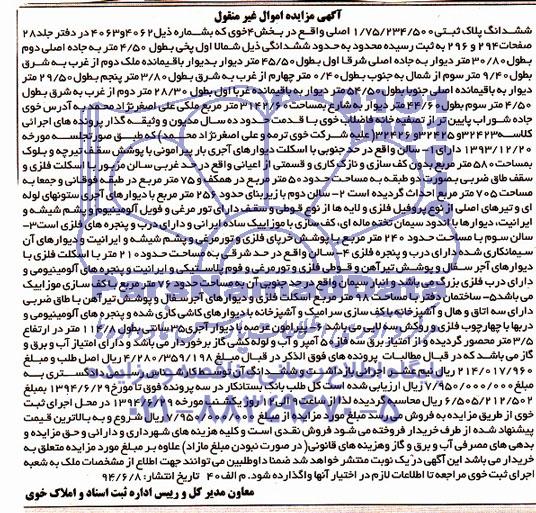 آگهی مزایده اموال غیر منقول
ششدانگ پلاک ثبتی ۱/۷۵/۲۳۴/۵۰۰ اصلی واقع در بخش ۴ خوی که بشماره ذیل ۴۰۶۲ و ۴۰۶۳ در دفتر جلد ۲۸
صفحات ۲۹۴ و ۲۹۶ به ثبت رسیده محدود به حدود ششدانگی ذیل شمالا اول پخی بطول ۴/۵۰ متر به جاده اصلی دوم
بطول ۳۰/۸۰ متر دیوار به جاده اصلی شرقا اول بطول ۴۵/۵۰ متر دیوار بدیوار باقیمانده ملک دوم از غرب به شرق
بطول ۹/۴۰ متر سوم از شمال به جنوب بطول ۰/۴۰ متر چهارم از غرب به شرق بطول ۳/۸۰ متر پنجم بطول ۲۹/۵۰ متر
دیوار به باقیمانده اصلی جنوبا بطول ۵۴/۵۰ متر دیوار به باقیمانده غربا اول بطول ۲۸/۳۰ متر دوم از غرب به شرق بطول
۴/۵۰ متر سوم بطول ۴۴/۶۰ متر دیوار به شارع بمساحت ۳۱۴۲/۶۰ متر مربع ملکی علی اصغر نژاد محمد به آدرس خوی
جاده شوراب پایین تر از تصفیه خانه فاضلاب خوی با قدمت حدود ده سال مدیون و وثیقه گذار پرونده های اجرائی
کلاسه ۳۲۴۲۳ و ۳۲۴۲۵ و ۳۲۴۲۶ (علیه شرکت خوی ترمه و علی اصغر نژاد محمد) که طبق صورتجلسه مورخه
۱۳۹۳/۱۲/۲۰ دارای ۱- سالن واقع در حد جنوبی با اسکلت دیوارهای آجری بار پیرامونی با پوشش سقف تیرچه و بلوک
بمساحت ۵۸۰ متر مربع بدون کف سازی و نازک کاری و قسمتی از اعیانی واقع در حد غربی سالن مزبور با اسکلت فلزی و
سقف طاق ضربی بصورت دو طبقه به مساحت حدود ۵۰ متر مربع در همکف و ۷۵ متر مربع در طبقه فوقانی و جمعا به
مساحت ۷۰۵ متر مربع احداث گردیده است ۲- سالن دوم با زیربنای حدود ۲۵۶ متر مربع با دیوارهای آجری ستونهای لوله
ای و تیرهای اصلی از نوع پروفیل فلزی و لابه ها از نوع قوطی و سقف دارای تور مرغی و فویل آلومینیوم و پشم شیشه و
ایرانیت، دیوارها با اندود سیمان تخته ماله ای، کف سازی با موزاییک ساده ایرانی و دارای درب و پنجره های فلزی است ۳-
سالن سوم با مساحت حدود ۲۴۰ متر مربع با پوشش خرپای فلزی و تورمرغی و پشم شیشه و ایرانیت و دیوارهای آن
سیمانکاری شده دارای درب و پنجره فلزی ۴- سالن واقع در حد شرقی به مساحت حدود ۲۱۰ متر با اسکلت فلزی با
دیوارهای آجر سفال و پوشش تیرآهن و قوطی فلزی و تورمرغی و فوم پلاستیکی و ایرانیت و پنجره های آلومینیومی و
دارای درب فلزی بزرگ می باشد و انبار سیمان واقع در حد جنوبی آن به مساحت حدود ۳۶ متر مربع با کف سازی موزاییک
می باشد ۵- ساختمان دفتر با مساحت ۹۸ متر مربع اسکلت فلزی و دیوارهای آجر سفال و پوشش تیرآهن با طاق ضربی
دارای سه اتاق و هال و آشپزخانه با کف سازی سرامیک و آشپزخانه با دیوارهای کاشی کاری شده و پنجره های آلومینیومی و
دربها با چهارچوب فلزی و روکش سه لایی می باشد ۶- پیرامون عرصه با دیوار آجری ۳۵ سانتی بطول ۱۱۶/۸ متر در ارتفاع
۳/۵ متر محصور گردیده و از امتیاز برق سه فاز ۵۰ آمپر و آب و لوله کشی گاز برخوردار می باشد و دارای امتیاز آب و برق و
گاز می باشد که در قبال مطالبات پرونده های فوق الذکر در قبال مبلغ ۴/۲۸۰/۳۵۹/۱۹۸ ریال اصل طلب و مبلغ
۲۱۴/۰۱۷/۹۶۰ ریال نیم عشر اجرائی بازداشت و ششدانگ آن توسط کارشناس رسمی دادگستری به
مبلغ ۷/۹۵۰/۰۰۰/۰۰۰ ریال ارزیابی شده است کل طلب بانک بستانکار در سه پرونده فوق تا مورخ ۱۳۹۴/۶/۲۹ بمبلغ
۶/۵۰۵/۲۱۲/۵۰۲ ریال محاسبه گردیده لذا از ساعت ۹ الی ۱۲ روز یکشنبه مورخه ۱۳۹۴/۶/۲۹ در محل اجرای ثبت
خوی از طریق مزایده به فروش می رسد مبلغ مورد مزایده از مبلغ ۷/۹۵۰/۰۰۰/۰۰۰ ریال شروع و به بالاترین قیمت
پیشنهاد شده از طرف خریدار فروخته می شود فروش نقدی است و کلیه هزینه های شهرداری و دارائی و حق مزایده و
بدهی های مصرفی آب و برق و گاز و هزینه های قانونی (در صورت نبودن مبلغ مازاد) علاوه بر مبلغ مورد مزایده متعلق به
خریدار می باشد این آگهی در یک نوبت منتشر خواهد شد ضمنا داوطلبین می توانند جهت اطلاع از مشخصات ملک به شعبه
اجرای ثبت خوی مراجعه تا اطلاعات لازم در اختیار آنها واگذارده شود. م الف ۴۰ تاریخ انتشار: ۹۴/۶/۸
معاون مدیر کل و رییس اداره ثبت اسناد و املاک خوی
۰۲۱-۸۸۳۴۹۶۷۰-۵